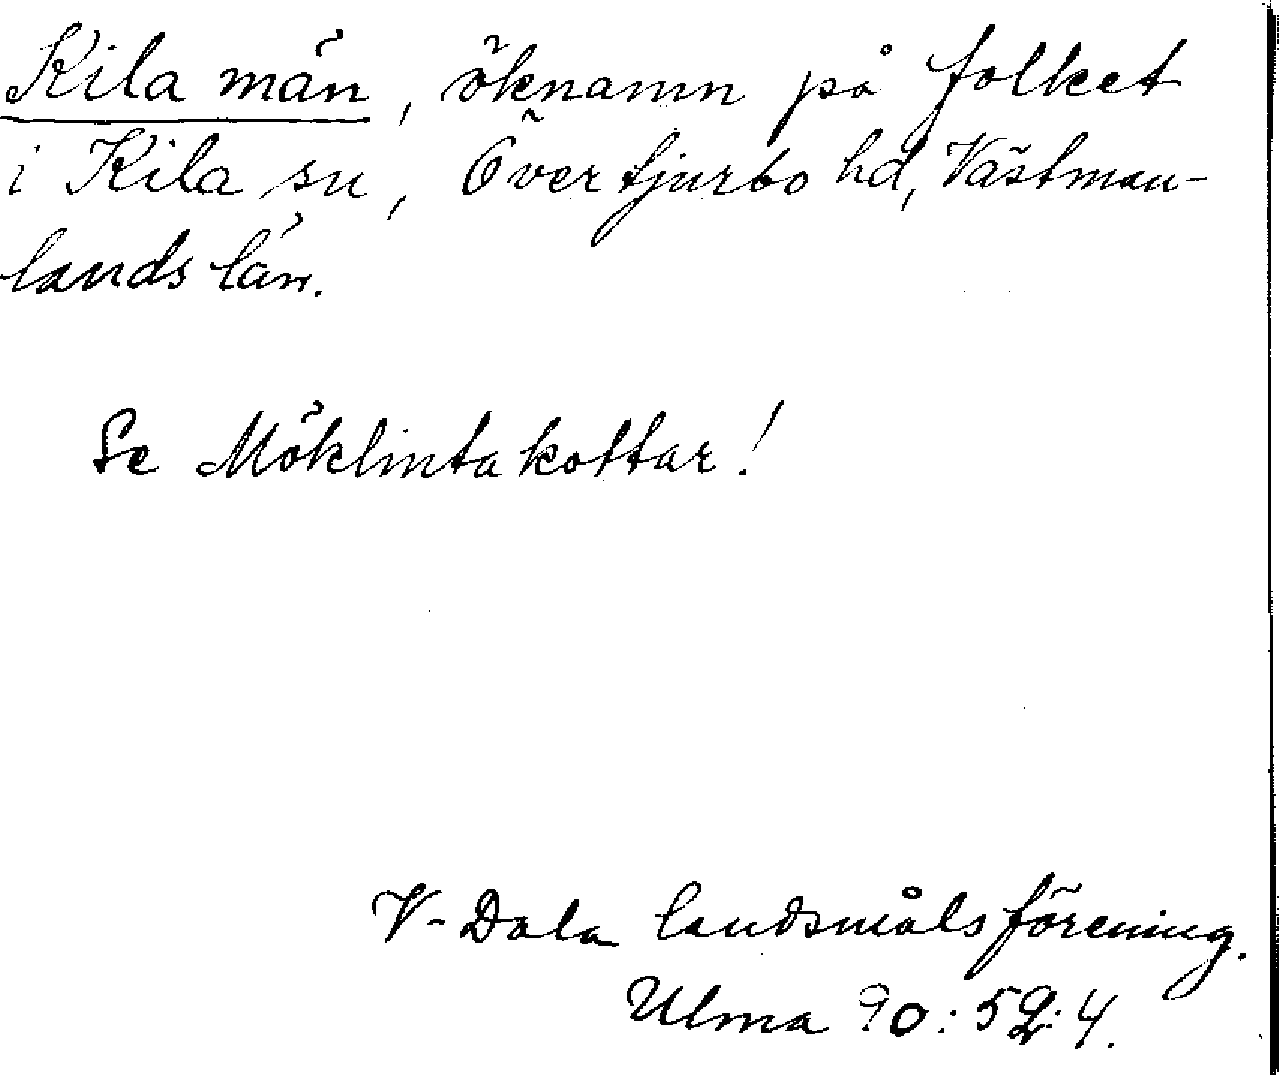 Kila män, öknamn på folket
i Kila sn, Övertjurbo hd, Västman-
lands län.
Se Möklinta kottar!
V-Dala landsmålsförening.
Ulma 90:52:4.